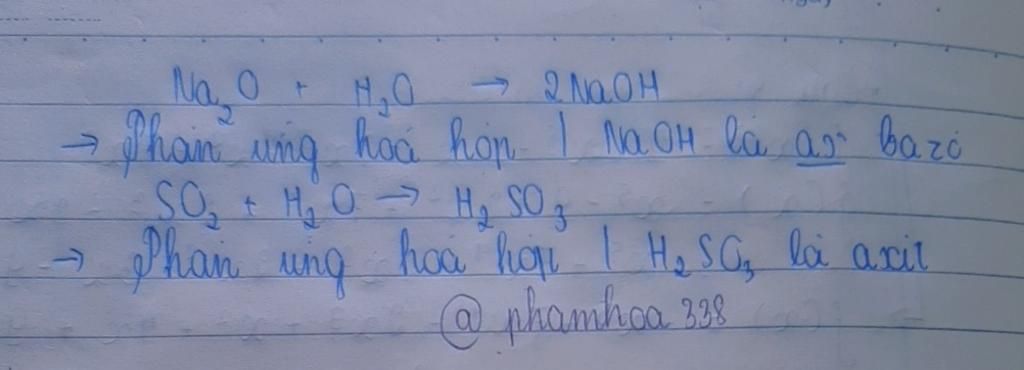 Na₂O + H₂O → 2NaOH
→ Phản ứng hoá hợp | NaOH là bazơ
SO₂ + H₂O → H₂SO₃
→ Phản ứng hoá hợp | H₂SO₃ là axit
@phamhoa338